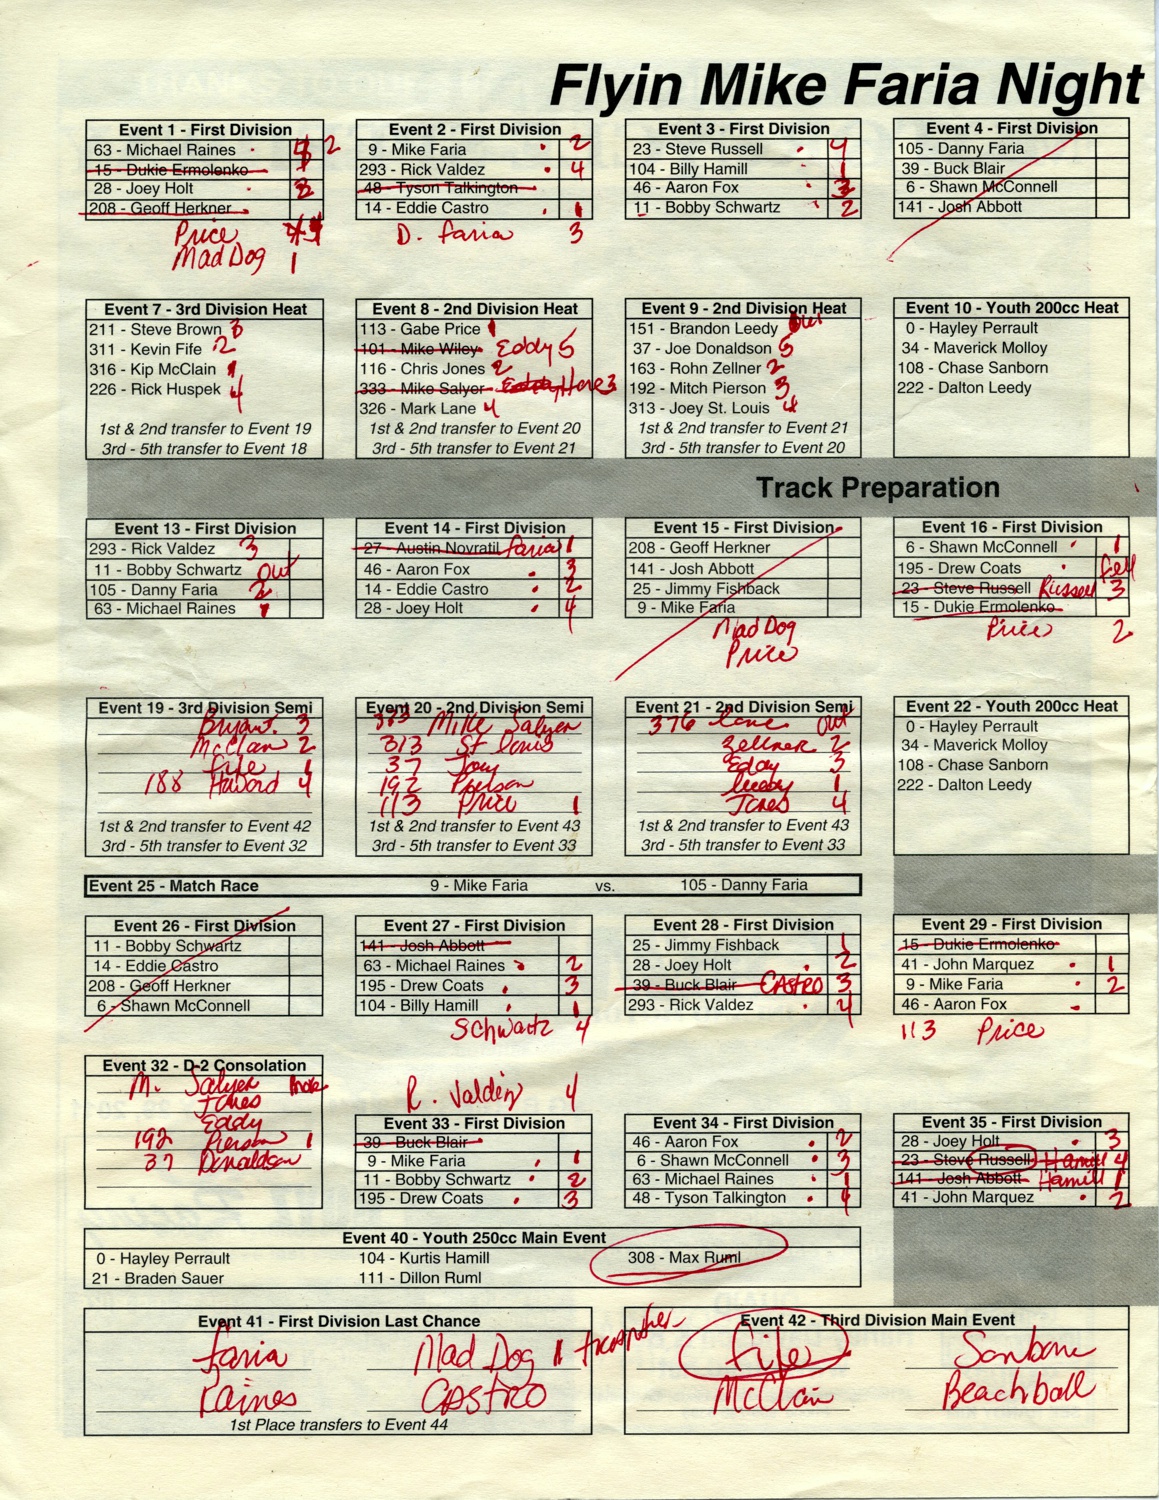 Flyin Mike Faria Night
Event 1 - First Division
63 - Michael Raines 2
15 - Dukie Ermolenko
28 - Joey Holt
208 - Geoff Herkner
Price
Mad Dog 1
Event 2 - First Division
9 - Mike Faria 2
293 - Rick Valdez 4
48 - Tyson Talkington
14 - Eddie Castro 1
D. Faria 3
Event 3 - First Division
23 - Steve Russell 4
104 - Billy Hamill 1
46 - Aaron Fox 3
11 - Bobby Schwartz 2
Event 4 - First Division
105 - Danny Faria
39 - Buck Blair
6 - Shawn McConnell
141 - Josh Abbott
Event 7 - 3rd Division Heat
211 - Steve Brown 3
311 - Kevin Fife 2
316 - Kip McClain 1
226 - Rick Huspek 4
1st & 2nd transfer to Event 19
3rd - 5th transfer to Event 18
Event 8 - 2nd Division Heat
113 - Gabe Price 1
101 - Mike Wiley Eddy 5
116 - Chris Jones 2
333 - Mike Salyer Here 3
326 - Mark Lane 4
1st & 2nd transfer to Event 20
3rd - 5th transfer to Event 21
Event 9 - 2nd Division Heat
151 - Brandon Leedy out
37 - Joe Donaldson 5
163 - Rohn Zellner 2
192 - Mitch Pierson 3
313 - Joey St. Louis 4
1st & 2nd transfer to Event 21
3rd - 5th transfer to Event 20
Event 10 - Youth 200cc Heat
0 - Hayley Perrault
34 - Maverick Molloy
108 - Chase Sanborn
222 - Dalton Leedy
Track Preparation
Event 13 - First Division
293 - Rick Valdez 3
11 - Bobby Schwartz out
105 - Danny Faria 2
63 - Michael Raines 1
Event 14 - First Division
27 - Austin Novratil Faria 1
46 - Aaron Fox 3
14 - Eddie Castro 2
28 - Joey Holt 4
Event 15 - First Division
208 - Geoff Herkner
141 - Josh Abbott
25 - Jimmy Fishback
9 - Mike Faria
Mad Dog
Price
Event 16 - First Division
6 - Shawn McConnell 1
195 - Drew Coats fell
23 - Steve Russell Russell 3
15 - Dukie Ermolenko
Price 2
Event 19 - 3rd Division Semi
Bryant. 3
McClain 2
Fife 1
188 Howord 4
1st & 2nd transfer to Event 42
3rd - 5th transfer to Event 32
Event 20 - 2nd Division Semi
333 Mike Salyer
313 St Louis
37 Joey
192 Pierson
113 Price 1
1st & 2nd transfer to Event 43
3rd - 5th transfer to Event 33
Event 21 - 2nd Division Semi
376 Lane out
Zellner 2
Eddy 3
Leedy 1
Jones 4
1st & 2nd transfer to Event 43
3rd - 5th transfer to Event 33
Event 22 - Youth 200cc Heat
0 - Hayley Perrault
34 - Maverick Molloy
108 - Chase Sanborn
222 - Dalton Leedy
Event 25 - Match Race 9 - Mike Faria vs. 105 - Danny Faria
Event 26 - First Division
11 - Bobby Schwartz
14 - Eddie Castro
208 - Geoff Herkner
6 - Shawn McConnell
Event 27 - First Division
141 - Josh Abbott
63 - Michael Raines 2
195 - Drew Coats 3
104 - Billy Hamill 1
Schwartz 4
Event 28 - First Division
25 - Jimmy Fishback 1
28 - Joey Holt 2
39 - Buck Blair CASTRO 3
293 - Rick Valdez 4
Event 29 - First Division
15 - Dukie Ermolenko
41 - John Marquez 1
9 - Mike Faria 2
46 - Aaron Fox
113 Price
Event 32 - D-2 Consolation
M. Salyer
Jones
Eddy
192 Pierson 1
37 Donaldson
R. Valdez 4
Event 33 - First Division
39 - Buck Blair
9 - Mike Faria 1
11 - Bobby Schwartz 2
195 - Drew Coats 3
Event 34 - First Division
46 - Aaron Fox 2
6 - Shawn McConnell 3
63 - Michael Raines 1
48 - Tyson Talkington 4
Event 35 - First Division
28 - Joey Holt 3
23 - Steve Russell Hamill 4
141 - Josh Abbott Hamill 1
41 - John Marquez 2
Event 40 - Youth 250cc Main Event
0 - Hayley Perrault 104 - Kurtis Hamill 308 - Max Ruml
21 - Braden Sauer 111 - Dillon Ruml
Event 41 - First Division Last Chance
Faria Mad Dog 1 transfer
Raines CASTRO
1st Place transfers to Event 44
Event 42 - Third Division Main Event
Fife Sanborn
McClain Beachball